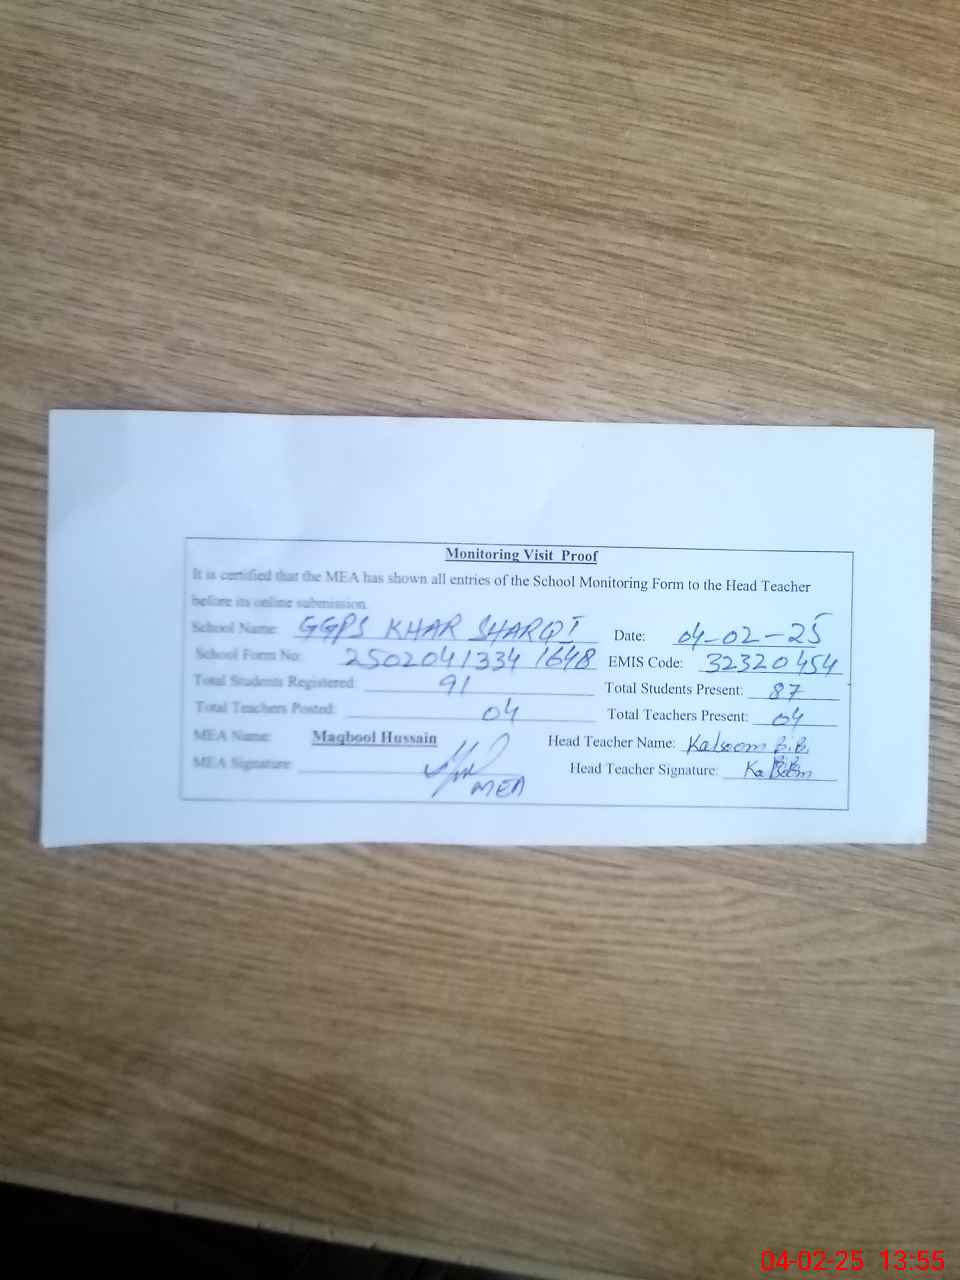 Monitoring Visit Proof
It is certified that the MEA has shown all entries of the School Monitoring Form to the Head Teacher
before its online submission.
School Name: GGPS KHAR SHARQI Date: 04-02-25
School Form No: 2502041334 1648 EMIS Code: 32320454
Total Students Registered: 91 Total Students Present: 87
Total Teachers Posted: 04 Total Teachers Present: 04
MEA Name: Maqbool Hussain Head Teacher Name: Kalsoom B.B.
MEA Signature: MEA Head Teacher Signature:
04-02-25 13:55